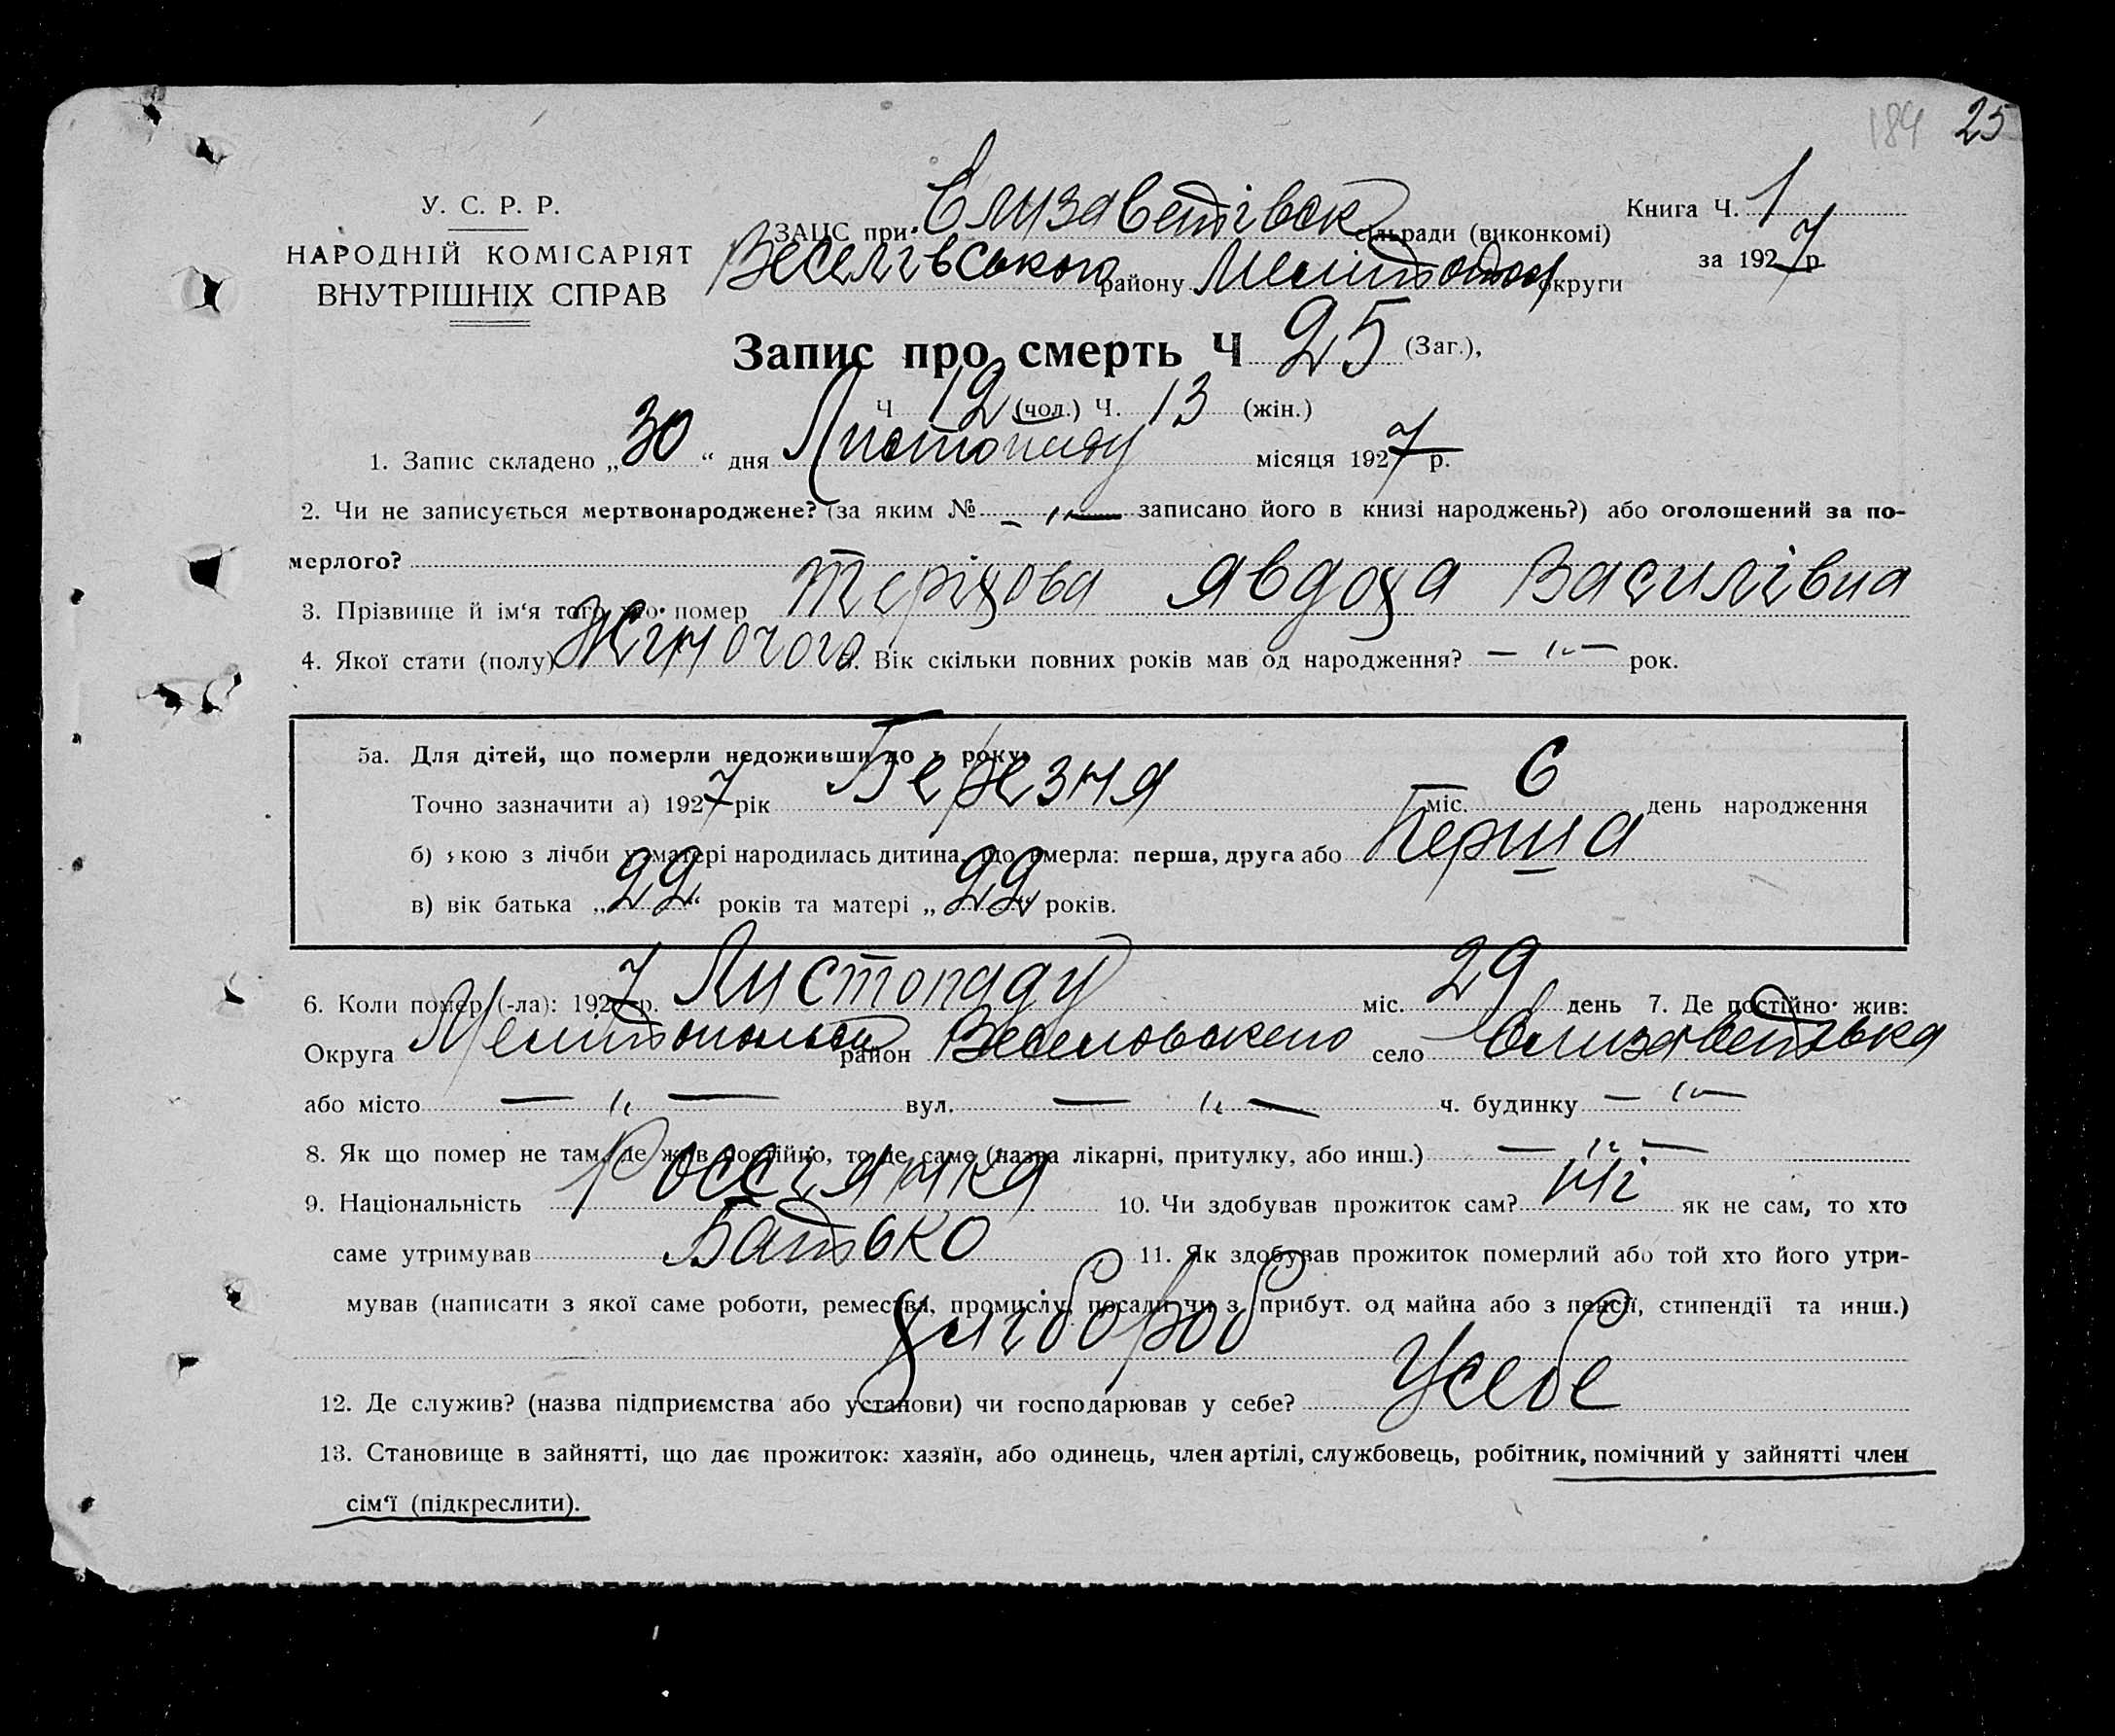 184 25
У. С. Р. Р.
НАРОДНІЙ КОМІСАРІЯТ
ВНУТРІШНІХ СПРАВ
ЗАЦС при Єлизаветівск сільради (виконкомі)
Веселівського району округи
Книга Ч. 1
за 1927 р.
Запис про смерть Ч 25 (Заг.),
Ч 12 (чол.) Ч. 13 (жін.)
1. Запис складено „30“ дня Листопаду місяця 1927 р.
2. Чи не записується мертвонароджене? (за яким № — „ — записано його в книзі народжень?) або оголошений за по-
мерлого?
3. Прізвище й ім'я того, хто помер Теріхова Явдоха Василівна
4. Якої стати (полу) Жіночого 5. Вік скільки повних років мав од народження? — „ — рок.
5а. Для дітей, що померли недоживши до 1 року.
Точно зазначити а) 1927 рік Березня міс. 6 день народження
б) якою з лічби у матері народилась дитина, що вмерла: перша, друга або Перша
в) вік батька „22“ років та матері „22“ років.
6. Коли помер (-ла): 1927 р. Листопаду міс. 29 день 7. Де постійно жив:
Округа Мелитопольськ район село Єлизаветівка
або місто — „ — вул. — „ — ч. будинку — „ —
8. Як що помер не там, де жив постійно, то де саме (назва лікарні, притулку, або инш.) — „ —
9. Національність Россіянка 10. Чи здобував прожиток сам? Ні як не сам, то хто
саме утримував Батько 11. Як здобував прожиток померлий або той хто його утри-
мував (написати з якої саме роботи, ремества, промислу, посади чи з прибут. од майна або з пенсії, стипендії та инш.)
Хлібороб
12. Де служив? (назва підприємства або установи) чи господарював у себе? Усебе
13. Становище в зайнятті, що дає прожиток: хазяїн, або одинець, член артілі, службовець, робітник, помічний у зайнятті член
сім'ї (підкреслити).